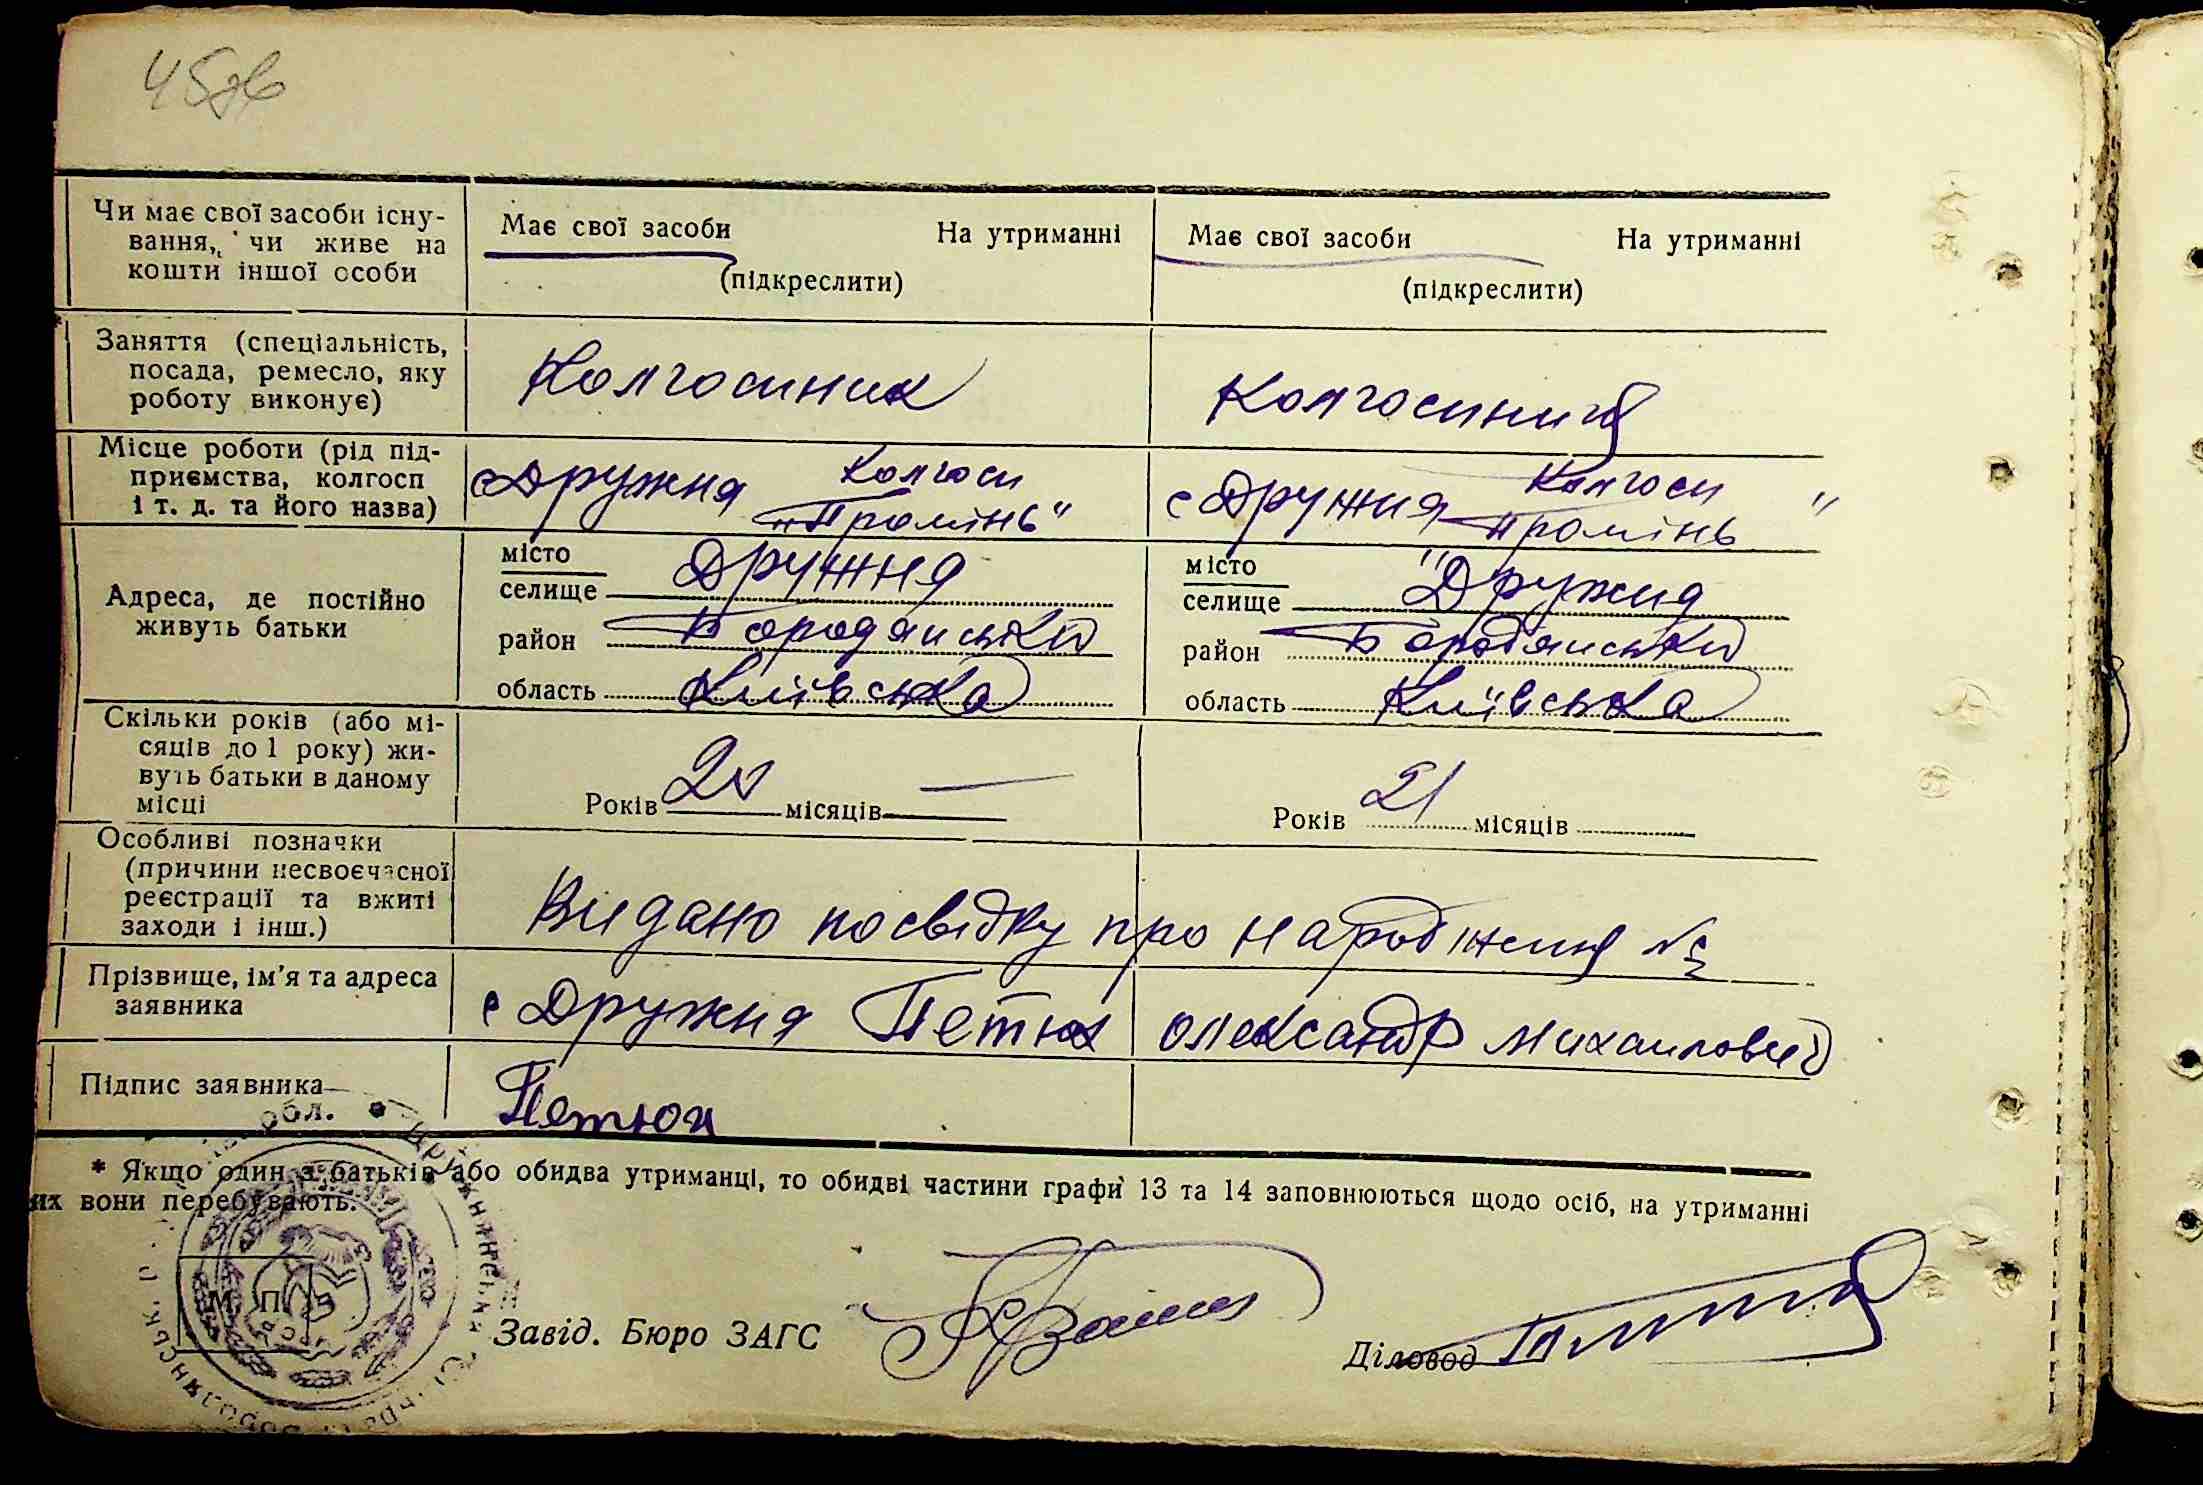 45зв
Чи має свої засоби існу-
вання, чи живе на
кошти іншої особи
Має свої засоби На утриманні
(підкреслити)
Має свої засоби На утриманні
(підкреслити)
Заняття (спеціальність,
посада, ремесло, яку
роботу виконує)
Колгоспник
Колгоспниця
Місце роботи (рід під-
приємства, колгосп
і т. д. та його назва)
с Дружня Колгосп
„Промінь"
с Дружня Колгосп
"Промінь"
Адреса, де постійно
живуть батьки
місто
селище Дружня
район Бородянський
область Київська
місто
селище Дружня
район Бородянський
область Київська
Скільки років (або мі-
сяців до 1 року) жи-
вуть батьки в даному
місці
Років 20 місяців —
Років 21 місяців
Особливі позначки
(причини несвоєчасної
реєстрації та вжиті
заходи і інш.)
Видано посвідку про народження №
Прізвище, ім'я та адреса
заявника
с Дружня Петюх Олександр Михайлович
Підпис заявника
Петюх
* Якщо один з батьків або обидва утриманці, то обидві частини графи 13 та 14 заповнюються щодо осіб, на утриманні
их вони перебувають.
обл.
М. П.
Завід. Бюро ЗАГС
Діловод